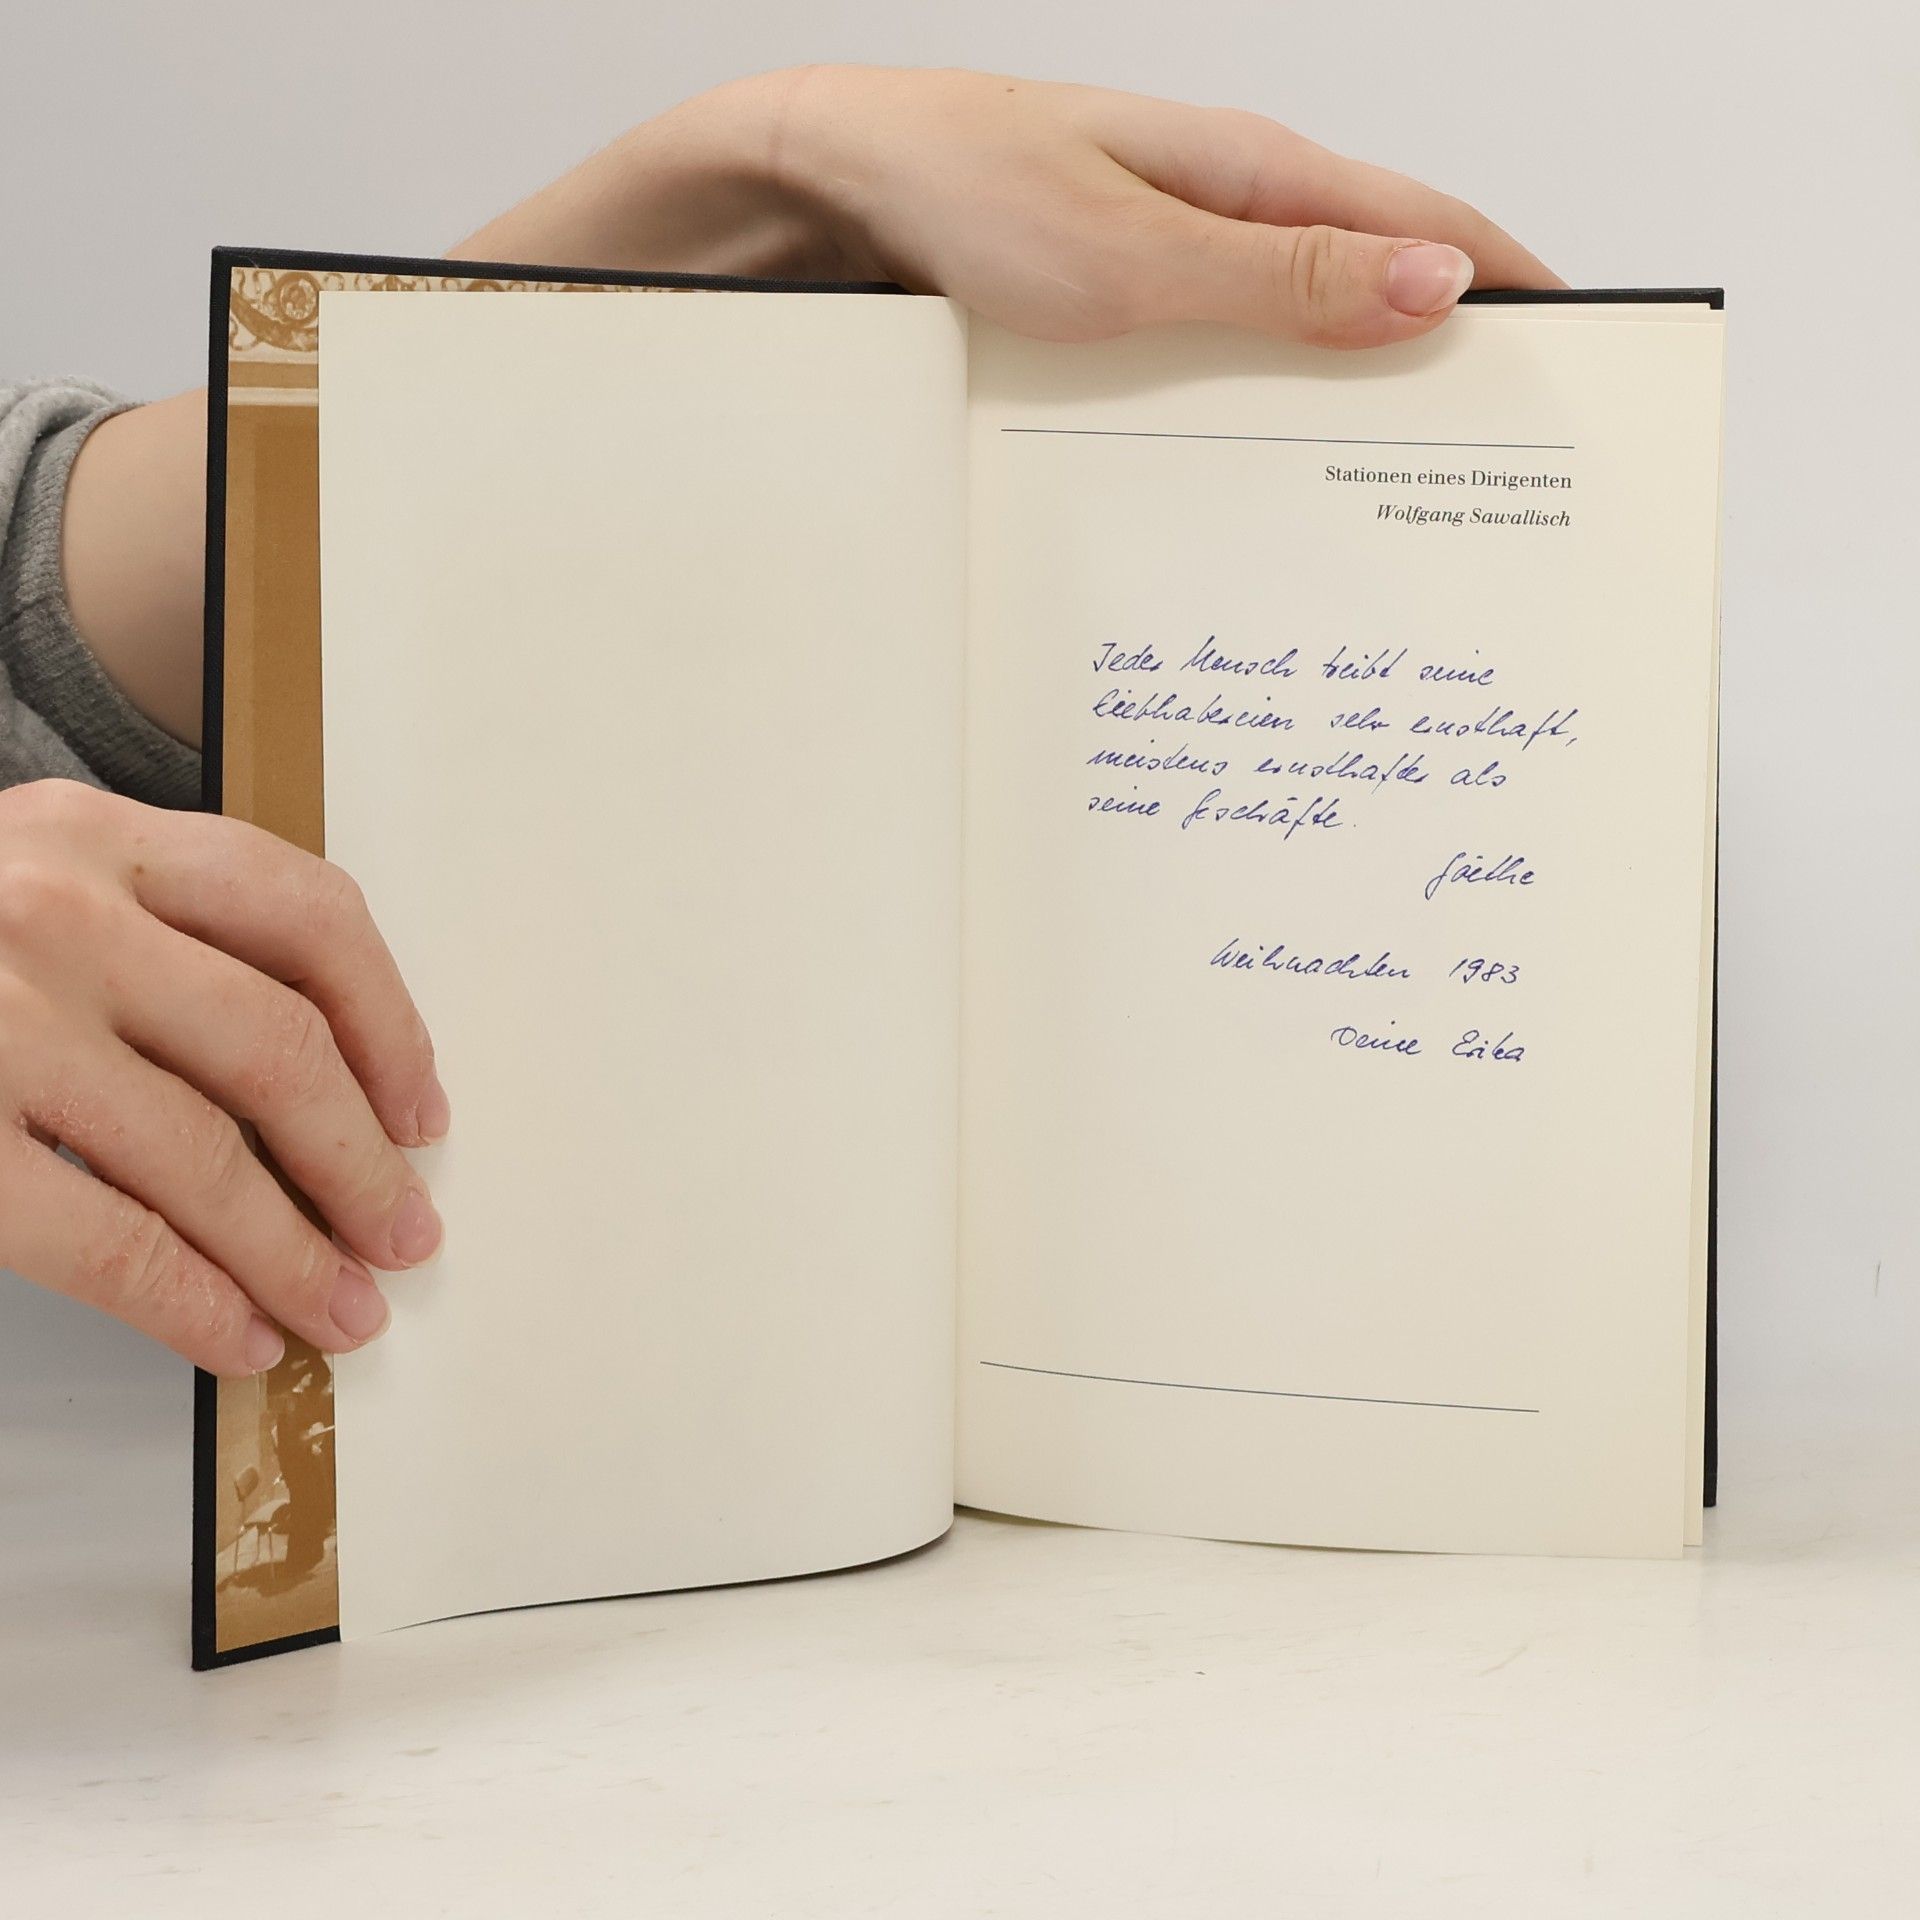 Stationen eines Dirigenten
Wolfgang Sawallisch
Jeder Mensch treibt seine
Liebhabereien sehr ernsthaft,
meistens ernsthafter als
seine Geschäfte.
Goethe
Weihnachten 1983
Deine Erika